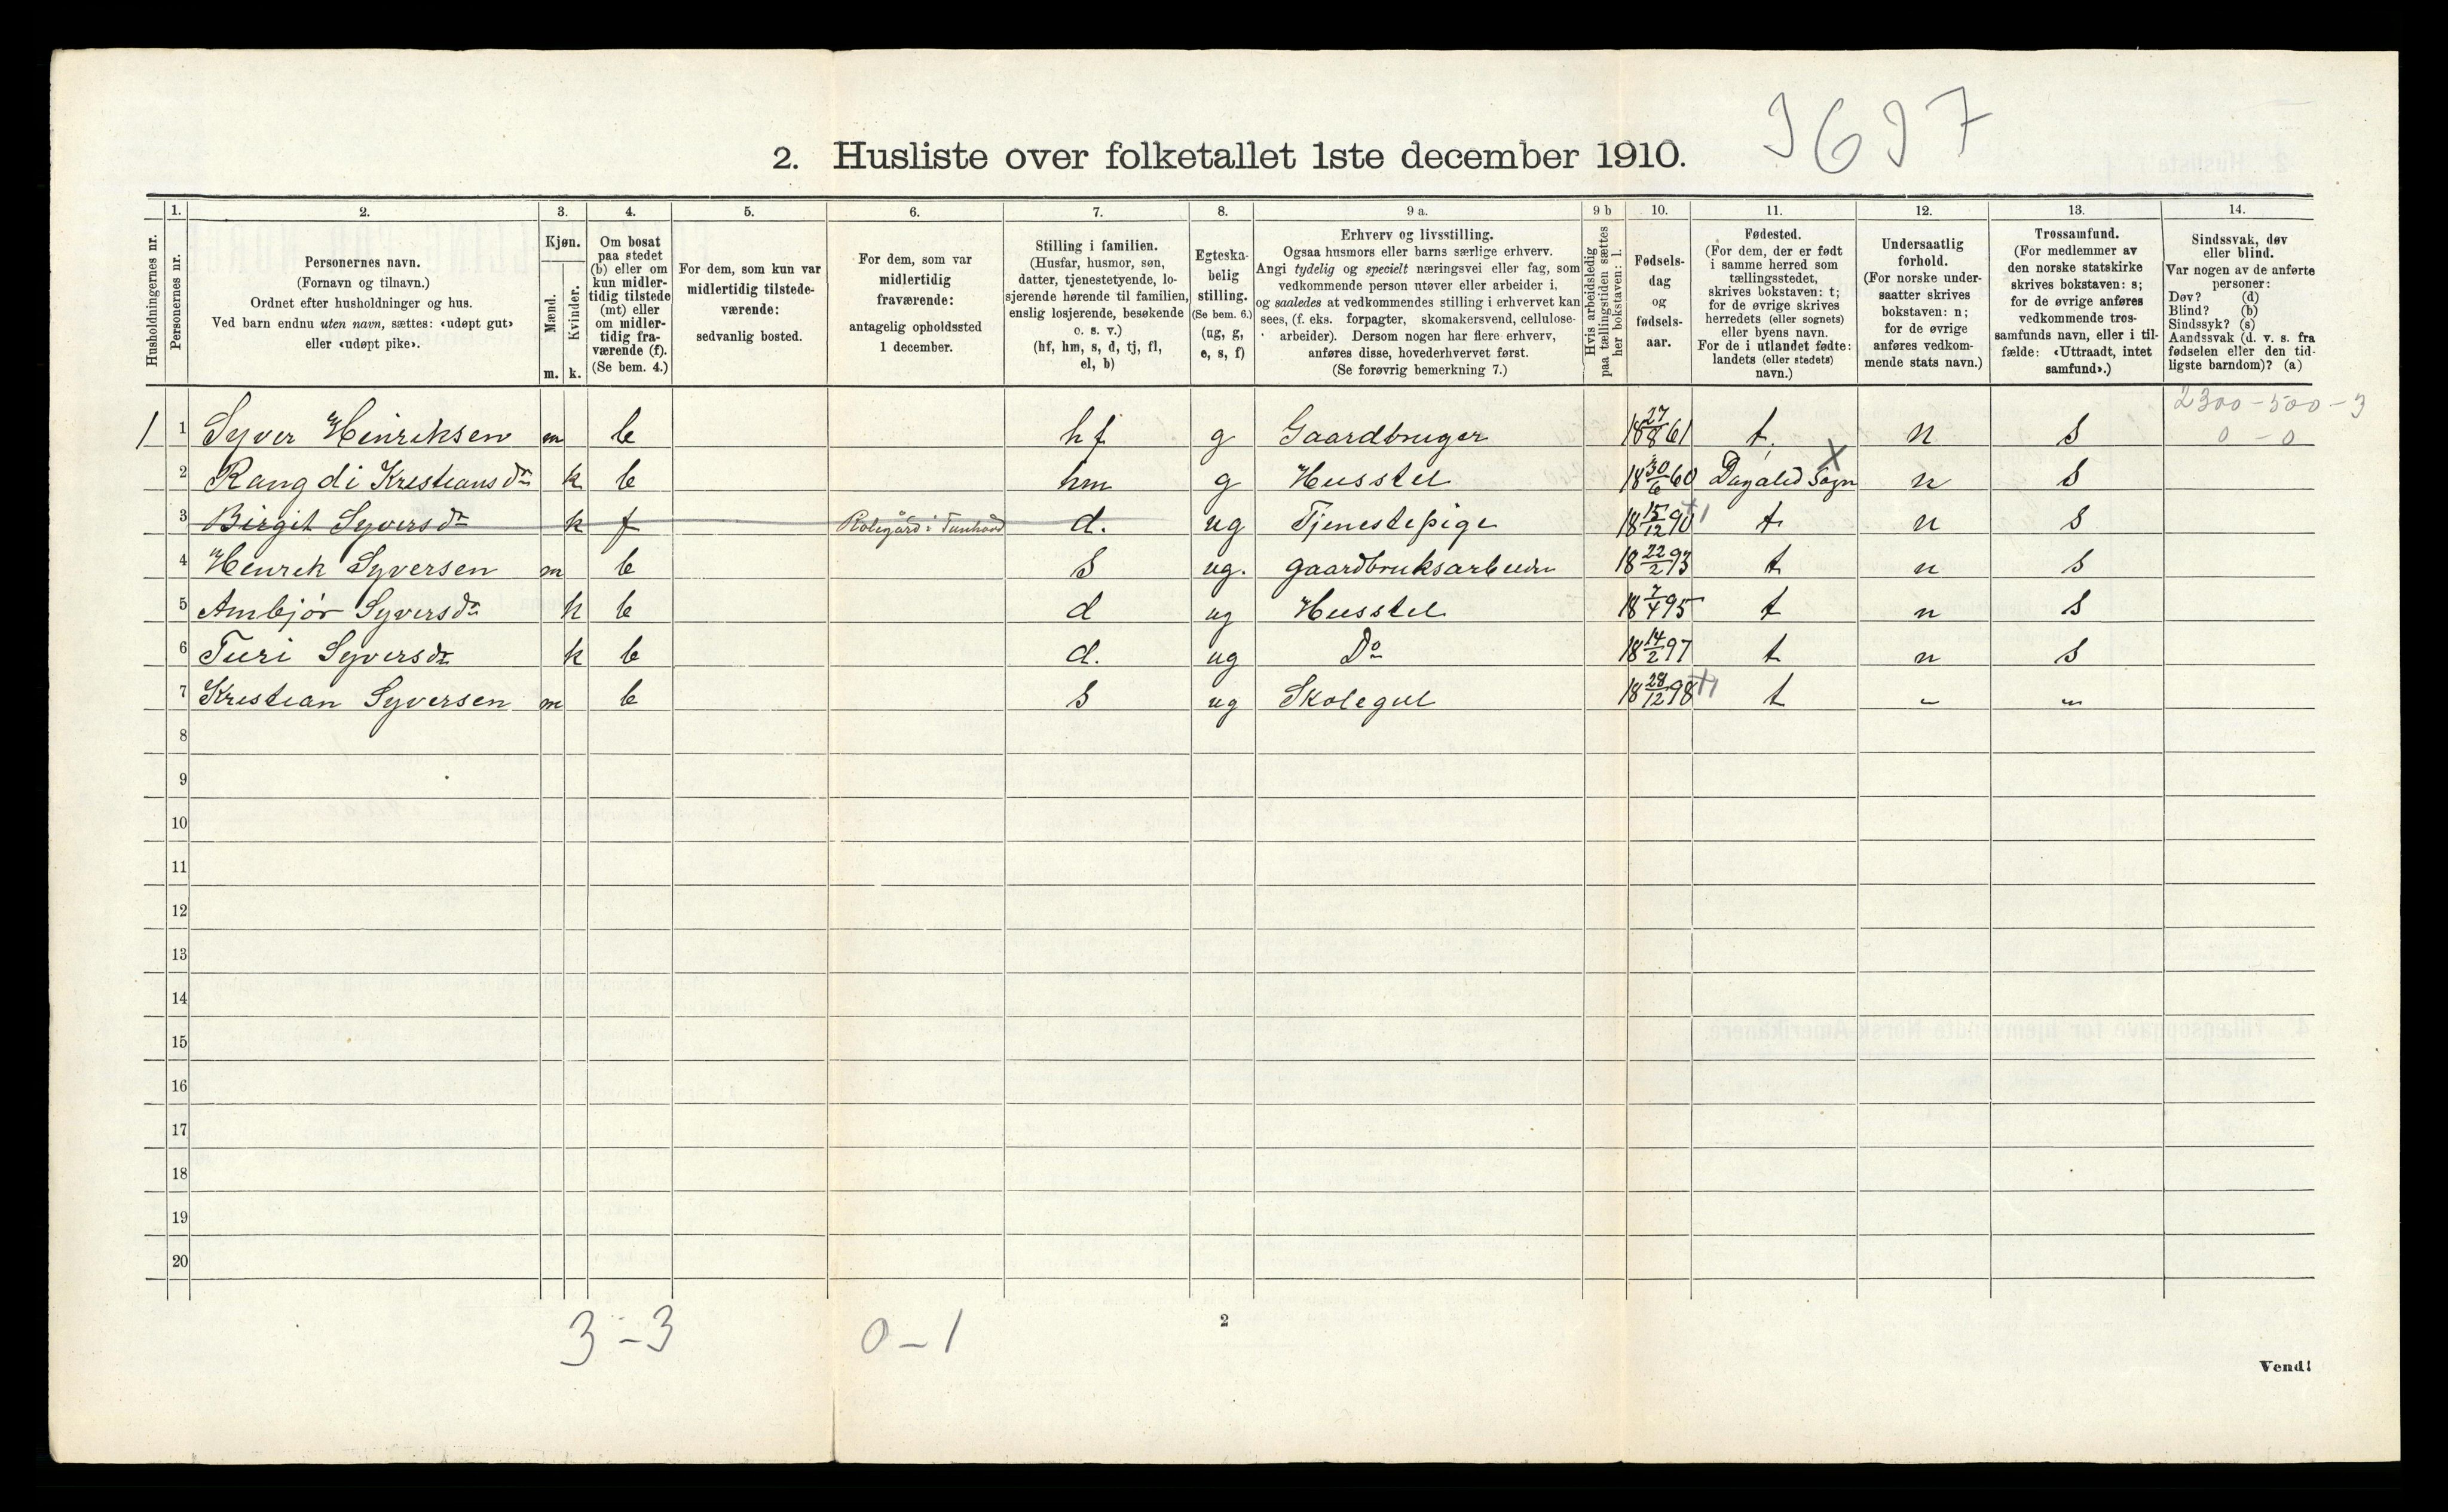 9697
2. Husliste over folketallet 1ste december 1910.
Husholdningernes nr.
1.
Personernes nr.
2.
Personernes navn.
(Fornavn og tilnavn.)
Ordnet efter husholdninger og hus.
Ved barn endnu uten navn, sættes: «udøpt gut»
eller «udøpt pike».
3.
Kjøn.
Mænd.
Kvinder.
m. k.
4.
Om bosat
paa stedet
(b) eller om
kun midler-
tidig tilstede
(mt) eller
om midler-
tidig fra-
værende (f).
(Se bem. 4.)
5.
For dem, som kun var
midlertidig tilstede-
værende:
sedvanlig bosted.
6.
For dem, som var
midlertidig
fraværende:
antagelig opholdssted
1 december.
7.
Stilling i familien.
(Husfar, husmor, søn,
datter, tjenestetyende, lo-
sjerende hørende til familien,
enslig losjerende, besøkende
o. s. v.)
(hf, hm, s, d, tj, fl,
el, b)
8.
Egteska-
belig
stilling.
(Se bem. 6.)
(ug, g,
e, s, f)
9 a.
Erhverv og livsstilling.
Ogsaa husmors eller barns særlige erhverv.
Angi tydelig og specielt næringsvei eller fag, som
vedkommende person utøver eller arbeider i,
og saaledes at vedkommendes stilling i erhvervet kan
sees, (f. eks. forpagter, skomakersvend, cellulose-
arbeider). Dersom nogen har flere erhverv,
anføres disse, hovederhvervet først.
(Se forøvrig bemerkning 7.)
9 b
Hvis arbeidsledig
paa tællingstiden sættes
her bokstaven: l.
10.
Fødsels-
dag
og
fødsels-
aar.
11.
Fødested.
(For dem, der er født
i samme herred som
tællingsstedet,
skrives bokstaven: t;
for de øvrige skrives
herredets (eller sognets)
eller byens navn.
For de i utlandet fødte:
landets (eller stedets)
navn.)
12.
Undersaatlig
forhold.
(For norske under-
saatter skrives
bokstaven: n;
for de øvrige
anføres vedkom-
mende stats navn.)
13.
Trossamfund.
(For medlemmer av
den norske statskirke
skrives bokstaven: s;
for de øvrige anføres
vedkommende tros-
samfunds navn, eller i til-
fælde: «Uttraadt, intet
samfund».)
14.
Sindssvak, døv
eller blind.
Var nogen av de anførte
personer:
Døv? (d)
Blind? (b)
Sindssyk? (s)
Aandssvak (d. v. s. fra
fødselen eller den tid-
ligste barndom)? (a)
2300 - 500 - 3
0 - 0
1 1 Syver Henriksen m b hf g Gaardbruger 18 27/8 61 t. n s
2 Rangdi Kristians dr k b hm g Husstel 18 30/6 60 Sogn X n s
3 Birgit Syvers dr k f i Tunhovd d. ug Tjenestepige 18 15/12 90 t n s
4 Henrik Syversen m b s ug. gaardbruksarbeider 18 22/2 93 t n s
5 Ambjør Syvers dr k b d ug Husstel 18 7/4 95 t n s
6 Turi Syvers dr k b d. ug Do 18 14/2 97 t n s
7 Kristian Syversen m b s ug Skolegut 18 28/12 98 t " "
8
9
10
11
12
13
14
15
16
17
18
19
20
3 - 3 0 - 1
2
Vend!